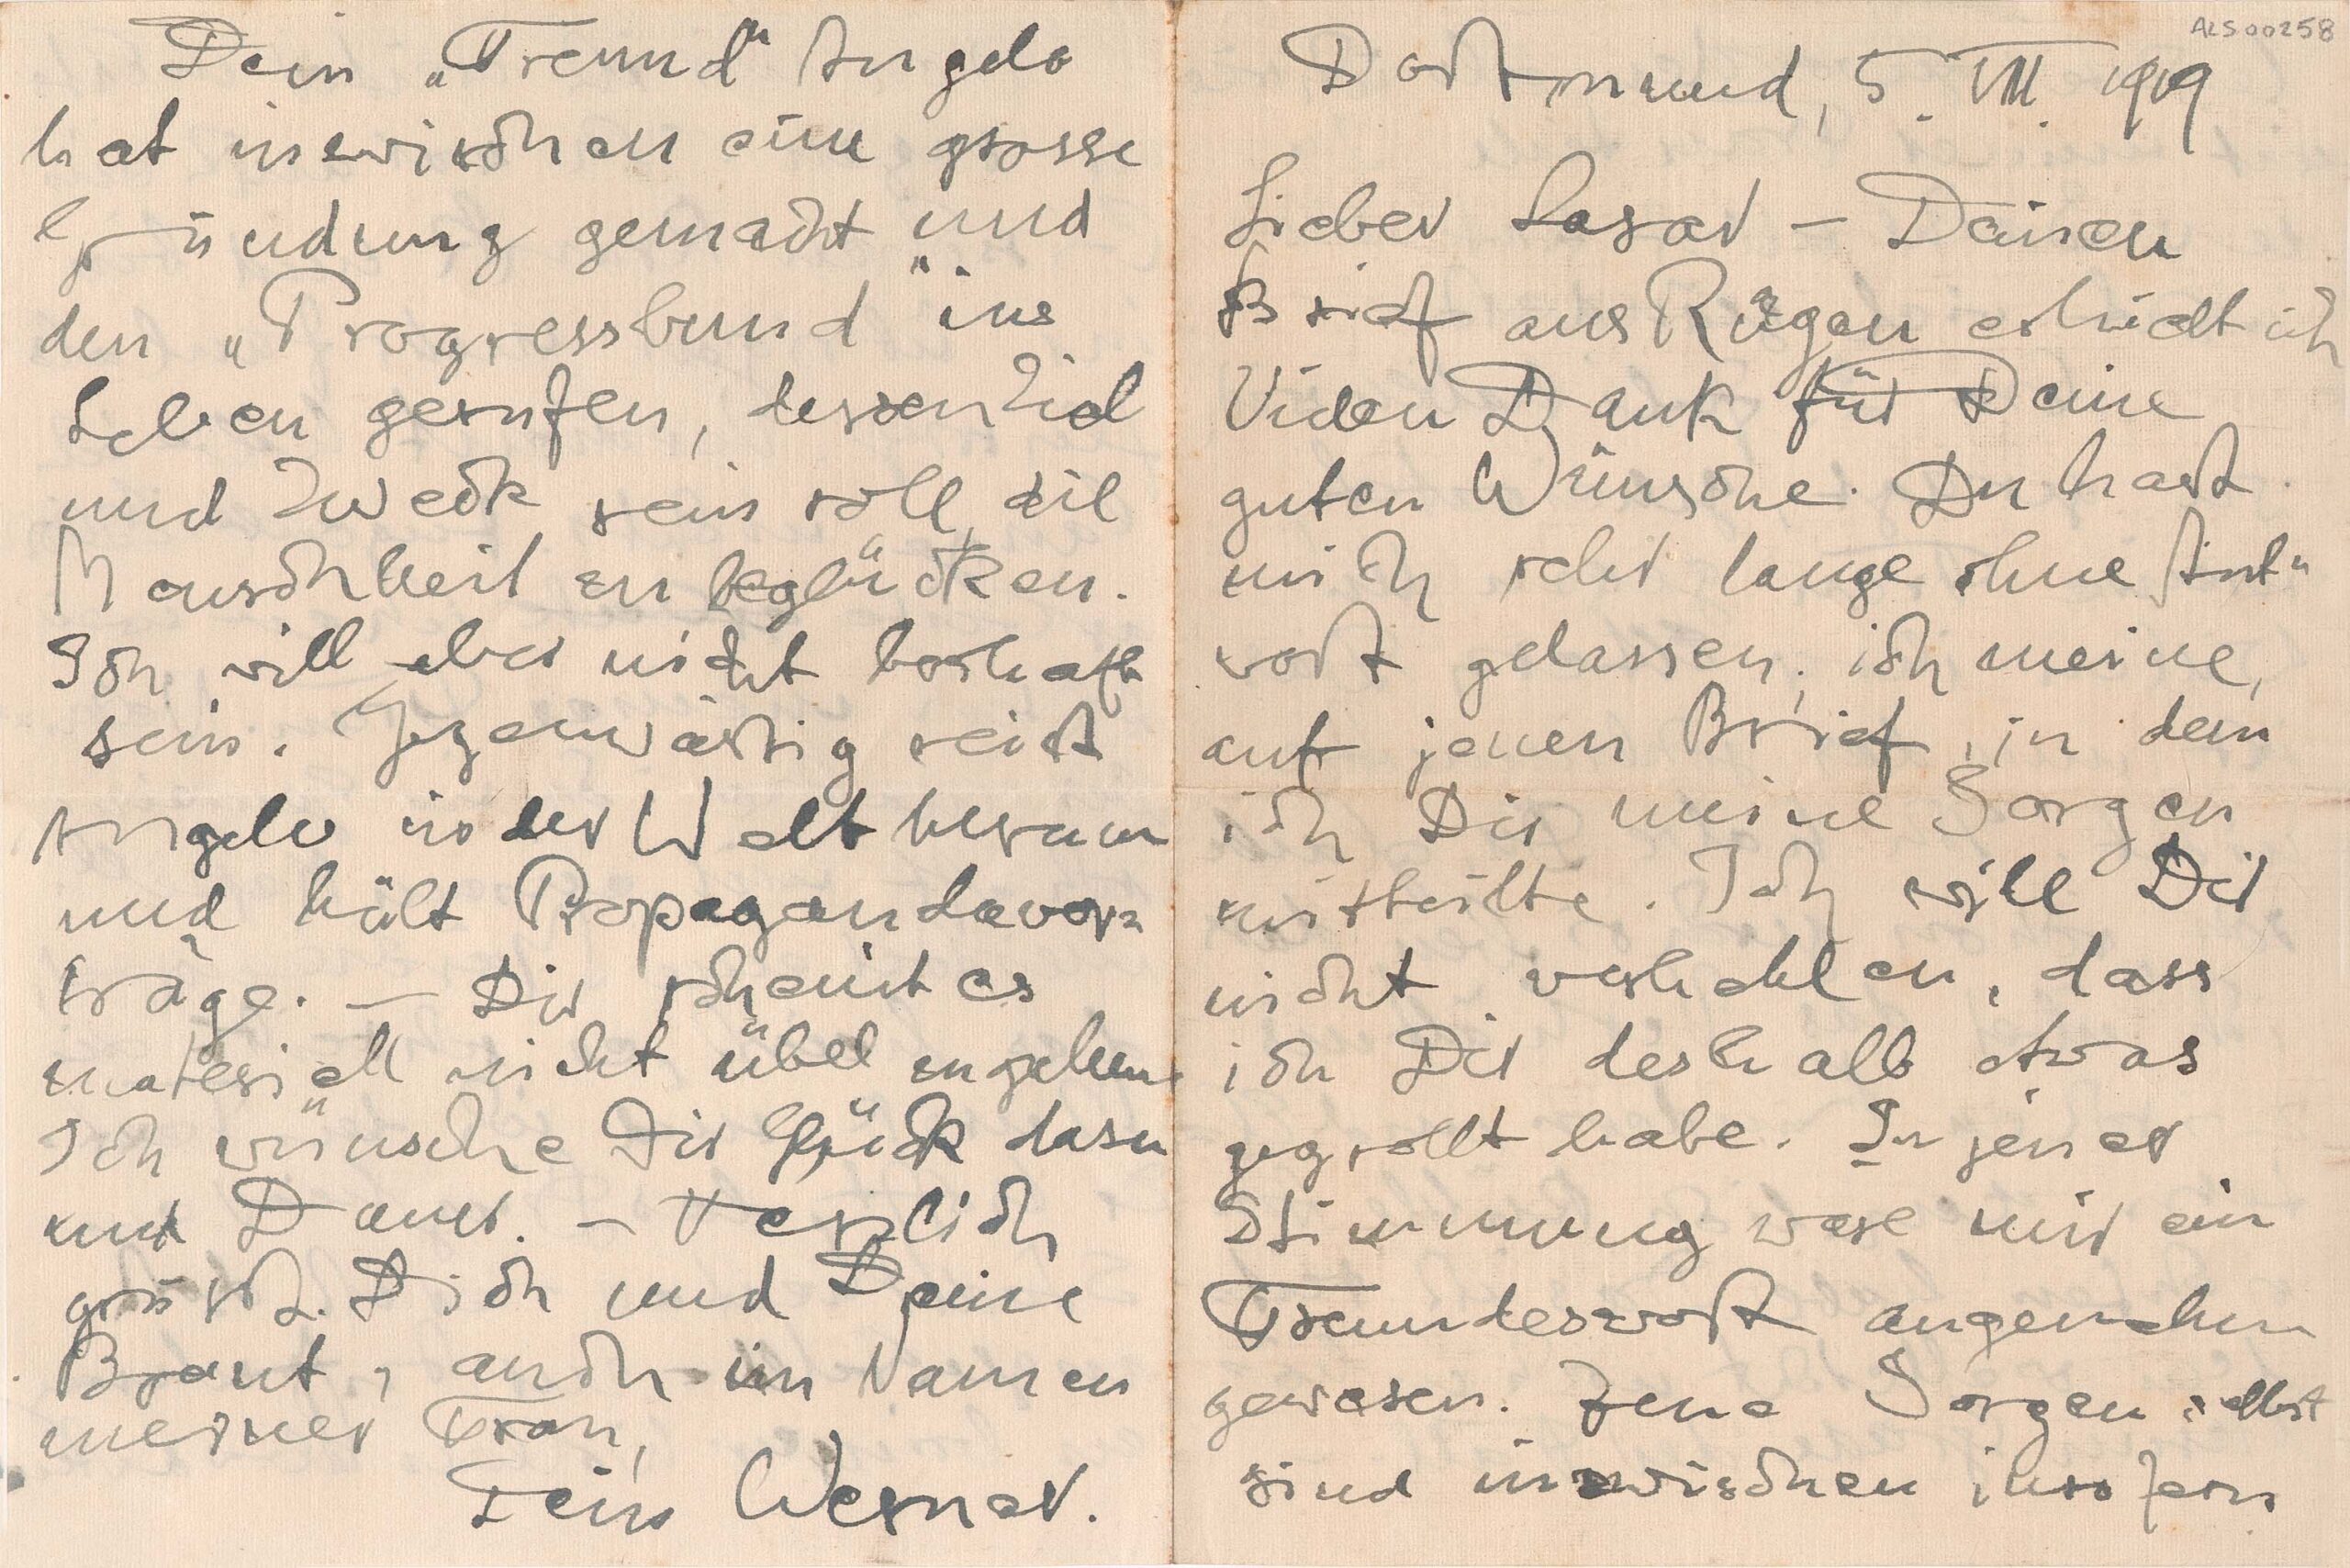 ALS00258
Dortmund, 5. VIII. 1919
Lieber Lasar – Deinen
Brief aus Rügen erhielt ich
Vielen Dank für Deine
guten Wünsche. Du hast
mich sehr lange ohne Ant-
wort gelassen; ich meine,
auf jenen Brief, in dem
ich Dir meine Sorgen
mitteilte. Ich will Dir
nicht verhehlen, dass
ich Dir deshalb etwas
gegrollt habe. In jener
Stimmung wäre mir ein
Freundeswort angenehm
gewesen. Jene Sorgen selbst
sind inzwischen insofern
Dein „Freund“ Angelo
hat inzwischen eine grosse
Gründung gemacht und
den „Progressbund“ ins
Leben gerufen, dessen Ziel
und Zweck sein soll, die
Menschheit zu beglücken.
Ich will aber nicht boshaft
sein. Gegenwärtig reist
Angelo in der Welt herum
und hält Propagandavor-
träge. – Dir scheint es
materiell nicht übel zu gehen.
Ich wünsche Dir Glück dazu
und Dauer. – Herzlich
grüsst Dich und Deine
Braut, auch im Namen
meiner Frau,
Dein Werner.